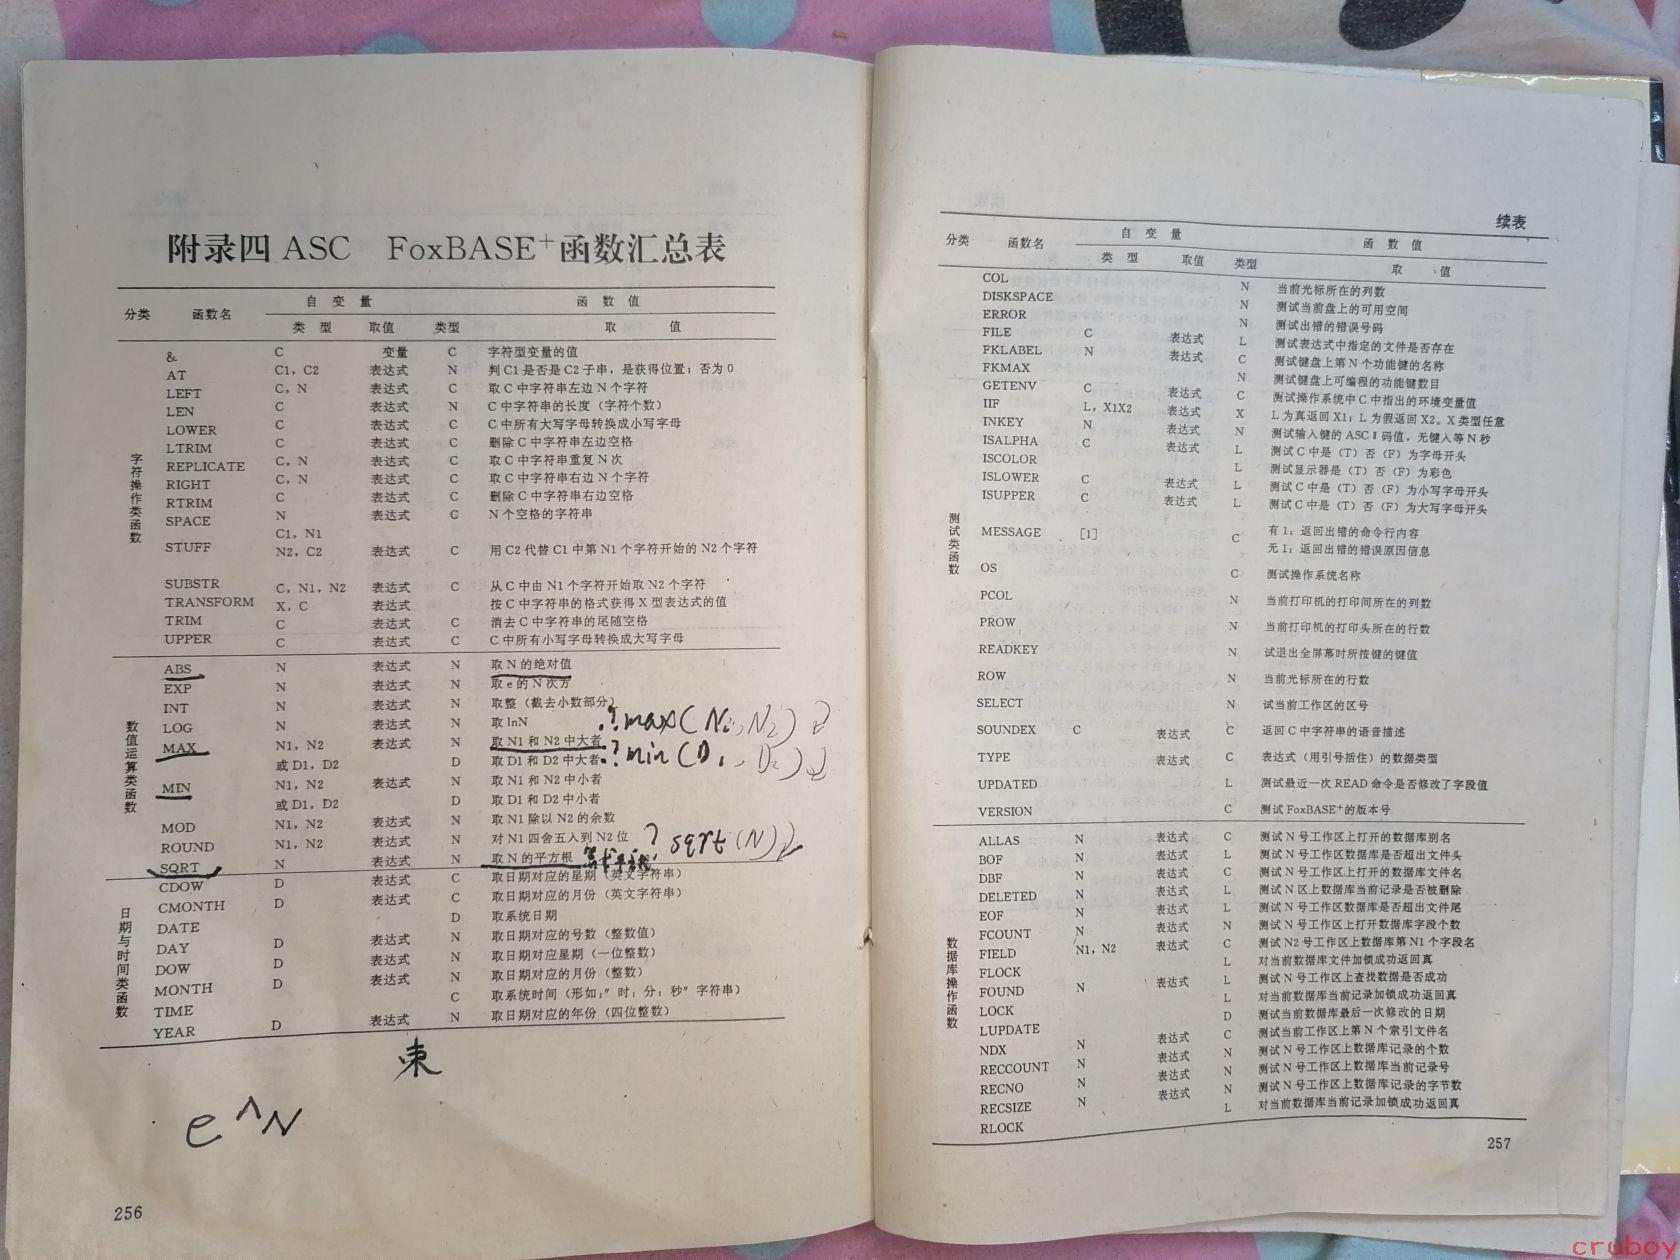 附录四 ASC FoxBASE+函数汇总表
分类 函数名 自变量 函数值
类型 取值 类型 取值
字符操作类函数
& C 变量 C 字符型变量的值
AT C1，C2 表达式 N 判C1是否是C2子串，是获得位置；否为0
LEFT C，N 表达式 C 取C中字符串左边N个字符
LEN C 表达式 N C中字符串的长度（字符个数）
LOWER C 表达式 C C中所有大写字母转换成小写字母
LTRIM C 表达式 C 删除C中字符串左边空格
REPLICATE C，N 表达式 C 取C中字符串重复N次
RIGHT C，N 表达式 C 取C中字符串右边N个字符
RTRIM C 表达式 C 删除C中字符串右边空格
SPACE N 表达式 C N个空格的字符串
C1，N1
STUFF N2，C2 表达式 C 用C2代替C1中第N1个字符开始的N2个字符
SUBSTR C，N1，N2 表达式 C 从C中由N1个字符开始取N2个字符
TRANSFORM X，C 表达式 按C中字符串的格式获得X型表达式的值
TRIM C 表达式 C 消去C中字符串的尾随空格
UPPER C 表达式 C C中所有小写字母转换成大写字母
数值运算类函数
ABS N 表达式 N 取N的绝对值
EXP N 表达式 N 取e的N次方
INT N 表达式 N 取整（截去小数部分）
LOG N 表达式 N 取lnN
?max(N2,N2)
MAX N1，N2 表达式 N 取N1和N2中大者
或D1，D2 D 取D1和D2中大者 ?min(D1,D2)
MIN N1，N2 表达式 N 取N1和N2中小者
或D1，D2 D 取D1和D2中小者
MOD N1，N2 表达式 N 取N1除以N2的余数
ROUND N1，N2 表达式 N 对N1四舍五入到N2位 ? sqrt(N)
SQRT N 表达式 N 取N的平方根
日期与时间类函数
CDOW D 表达式 C 取日期对应的星期（英文字符串）
CMONTH D 表达式 C 取日期对应的月份（英文字符串）
DATE D 取系统日期
DAY D 表达式 N 取日期对应的号数（整数值）
DOW D 表达式 N 取日期对应星期（一位整数）
MONTH D 表达式 N 取日期对应的月份（整数）
TIME C 取系统时间（形如："时：分：秒"字符串）
YEAR D 表达式 N 取日期对应的年份（四位整数）
束
e^N
256
续表
分类 函数名 自变量 函数值
类型 取值 类型 取值
测试类函数
COL N 当前光标所在的列数
DISKSPACE N 测试当前盘上的可用空间
ERROR N 测试出错的错误号码
FILE C 表达式 L 测试表达式中指定的文件是否存在
FKLABEL N 表达式 C 测试键盘上第N个功能键的名称
FKMAX N 测试键盘上可编程的功能键数目
GETENV C 表达式 C 测试操作系统中C中指出的环境变量值
IIF L，X1X2 表达式 X L为真返回X1；L为假返回X2。X类型任意
INKEY N 表达式 N 测试输入键的ASCⅡ码值，无键入等N秒
ISALPHA C 表达式 L 测试C中是（T）否（F）为字母开头
ISCOLOR L 测试显示器是（T）否（F）为彩色
ISLOWER C 表达式 L 测试C中是（T）否（F）为小写字母开头
ISUPPER C 表达式 L 测试C中是（T）否（F）为大写字母开头
MESSAGE [1] C 有1：返回出错的命令行内容
无1：返回出错的错误原因信息
OS C 测试操作系统名称
PCOL N 当前打印机的打印间所在的列数
PROW N 当前打印机的打印头所在的行数
READKEY N 试退出全屏幕时所按键的键值
ROW N 当前光标所在的行数
SELECT N 试当前工作区的区号
SOUNDEX C 表达式 C 返回C中字符串的语音描述
TYPE 表达式 C 表达式（用引号括住）的数据类型
UPDATED L 测试最近一次READ命令是否修改了字段值
VERSION C 测试FoxBASE+的版本号
数据库操作函数
ALLAS N 表达式 C 测试N号工作区上打开的数据库别名
BOF N 表达式 L 测试N号工作区数据库是否超出文件头
DBF N 表达式 C 测试N号工作区上打开的数据库文件名
DELETED N 表达式 L 测试N区上数据库当前记录是否被删除
EOF N 表达式 L 测试N号工作区数据库是否超出文件尾
FCOUNT N 表达式 N 测试N号工作区上打开数据库字段个数
FIELD N1，N2 表达式 C 测试N2号工作区上数据库第N1个字段名
FLOCK L 对当前数据库文件加锁成功返回真
FOUND N 表达式 L 测试N号工作区上查找数据是否成功
LOCK L 对当前数据库当前记录加锁成功返回真
LUPDATE D 测试当前数据库最后一次修改的日期
NDX N 表达式 C 测试当前工作区上第N个索引文件名
RECCOUNT N 表达式 N 测试N号工作区上数据库记录的个数
RECNO N 表达式 N 测试N号工作区上数据库当前记录号
RECSIZE N 表达式 N 测试N号工作区上数据库记录的字节数
RLOCK L 对当前数据库当前记录加锁成功返回真
257
cruboy